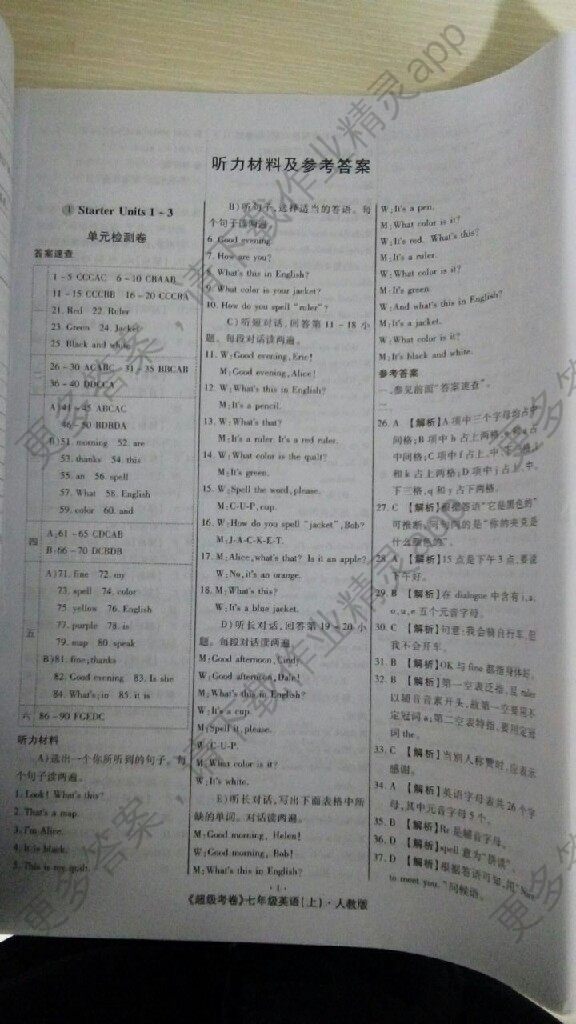 听力材料及参考答案
① Starter Units 1~3
单元检测卷
答案速查
一
1-5 CCCAC 6-10 CBAAB
11-15 CCCBB 16-20 CCCBA
21. Red 22. Ruler
23. Green 24. Jacket
25. Black and white
二
26-30 ACABC 31-35 BBCAB
36-40 DDCCA
三
A)41-45 ABCAC
46-50 BDBDA
B)51. morning 52. are
53. thanks 54. this
55. an 56. spell
57. What 58. English
59. color 60. and
四
A:61-65 CDCAB
B:66-70 DCBDB
五
A)71. fine 72. my
73. spell 74. color
75. yellow 76. English
77. purple 78. is
79. map 80. speak
B)81. fine;thanks
82. Good evening 83. Is she
84. What's;in 85. it is
六 86-90 FGEDC
听力材料
A)选出一个你所听到的句子。每
个句子读两遍。
1. Look! What's this?
2. That's a map.
3. I'm Alice.
4. It is black.
5. This is my quilt.
B)听句子,选择适当的答语。每
个句子读两遍。
6. Good evening.
7. How are you?
8. What's this in English?
9. What color is your jacket?
10. How do you spell "ruler"?
C)听短对话,回答第 11-18 小
题。每段对话读两遍。
11. W:Good evening, Eric!
M:Good evening, Alice!
12. W:What's this in English?
M:It's a pencil.
13. W:What's that?
M:It's a ruler. It's a red ruler.
14. W:What color is the quilt?
M:It's green.
15. W:Spell the word, please.
M:C-U-P, cup.
16. W:How do you spell "jacket", Bob?
M:J-A-C-K-E-T.
17. M:Alice, what's that? Is it an apple?
W:No, it's an orange.
18. M:What's this?
W:It's a blue jacket.
D)听长对话,回答第 19-20 小
题。每段对话读两遍。
M:Good afternoon, Cindy!
W:Good afternoon, Dale!
M:What's this in English?
W:It's a cup.
M:Spell it, please.
W:C-U-P.
M:What color is it?
W:It's white.
E)听长对话,写出下面表格中所
缺的单词。对话读两遍。
M:Good morning, Helen!
W:Good morning, Bob!
M:What's this in English?
W:It's a pen.
M:What color is it?
W:It's red. What's this?
M:It's a ruler.
W:What color is it?
M:It's green.
W:And what's this in English?
M:It's a jacket.
W:What color is it?
M:It's black and white.
参考答案
一、参见前面"答案速查"。
二、
26. A 【解析】A 项中三个字母均占中
间格;B 项中 b 占上两格,
中间格;C 项中 f 占上、中
和 k 占上两格;D 项中 j 占上、中、
下三格,q 和 y 占下两格。
27. C 【解析】根据答语"它是黑色的"
可推断,问的是"你的夹克是
什么颜色的"。
28. A 【解析】15 点是下午 3 点,要说
下午好。
29. B 【解析】在 dialogue 中含有 i,a,
o,u,e 五个元音字母。
30. C 【解析】句意:我会骑自行车,但
我不会开车。
31. B 【解析】OK 与 fine 都指身体好。
32. B 【解析】第一空表泛指,且 ruler
以辅音音素开头,故第一空要用不
定冠词 a;第二空表特指,要用定冠
词 the。
33. C 【解析】当别人称赞时,应表示
感谢。
34. A 【解析】英语字母表共 26 个字
母,其中元音字母 5 个。
35. B 【解析】Rr 是辅音字母。
36. D 【解析】spell 意为"拼读"。
37. D 【解析】根据答语可知,用"Nice
to meet you."问候语。
· 1 ·
《超级考卷》七年级英语(上)·人教版
更多答案,请下载作业精灵app
更多答案,请下载作业精灵app